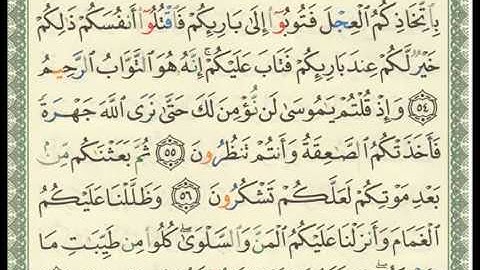 بِٱتِّخَاذِكُمُ ٱلْعِجْلَ فَتُوبُوٓا۟ إِلَىٰ بَارِئِكُمْ فَٱقْتُلُوٓا۟ أَنفُسَكُمْ ذَٰلِكُمْ
خَيْرٌ لَّكُمْ عِندَ بَارِئِكُمْ فَتَابَ عَلَيْكُمْ ۚ إِنَّهُۥ هُوَ ٱلتَّوَّابُ ٱلرَّحِيمُ
﴿٥٤﴾ وَإِذْ قُلْتُمْ يَٰمُوسَىٰ لَن نُّؤْمِنَ لَكَ حَتَّىٰ نَرَى ٱللَّهَ جَهْرَةً
فَأَخَذَتْكُمُ ٱلصَّٰعِقَةُ وَأَنتُمْ تَنظُرُونَ ﴿٥٥﴾ ثُمَّ بَعَثْنَٰكُم مِّنۢ
بَعْدِ مَوْتِكُمْ لَعَلَّكُمْ تَشْكُرُونَ ﴿٥٦﴾ وَظَلَّلْنَا عَلَيْكُمُ
ٱلْغَمَامَ وَأَنزَلْنَا عَلَيْكُمُ ٱلْمَنَّ وَٱلسَّلْوَىٰ ۖ كُلُوا۟ مِن طَيِّبَٰتِ مَا